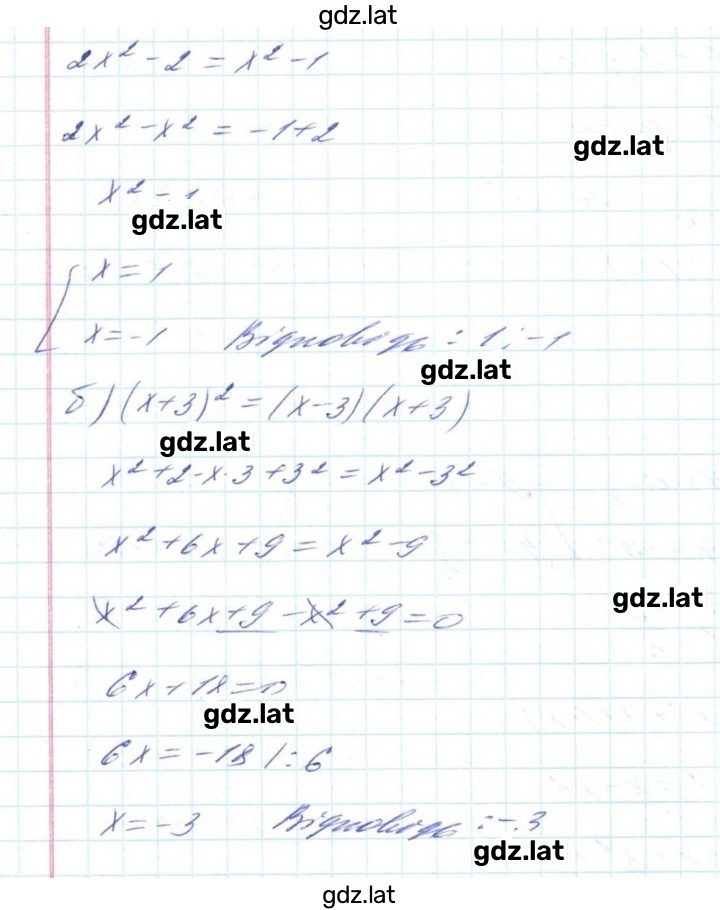 gdz.lat
2x² - 2 = x² - 1
2x² - x² = -1+2
gdz.lat
x² - 1
gdz.lat
[ x = 1
x = -1 Відповідь: 1; -1
gdz.lat
б) (x+3)² = (x-3)(x+3)
gdz.lat
x² + 2·x·3 + 3² = x² - 3²
x² + 6x + 9 = x² - 9
gdz.lat
x² + 6x + 9 - x² + 9 = 0
6x + 18 = 0
gdz.lat
6x = -18 /: 6
x = -3 Відповідь: -3
gdz.lat
gdz.lat